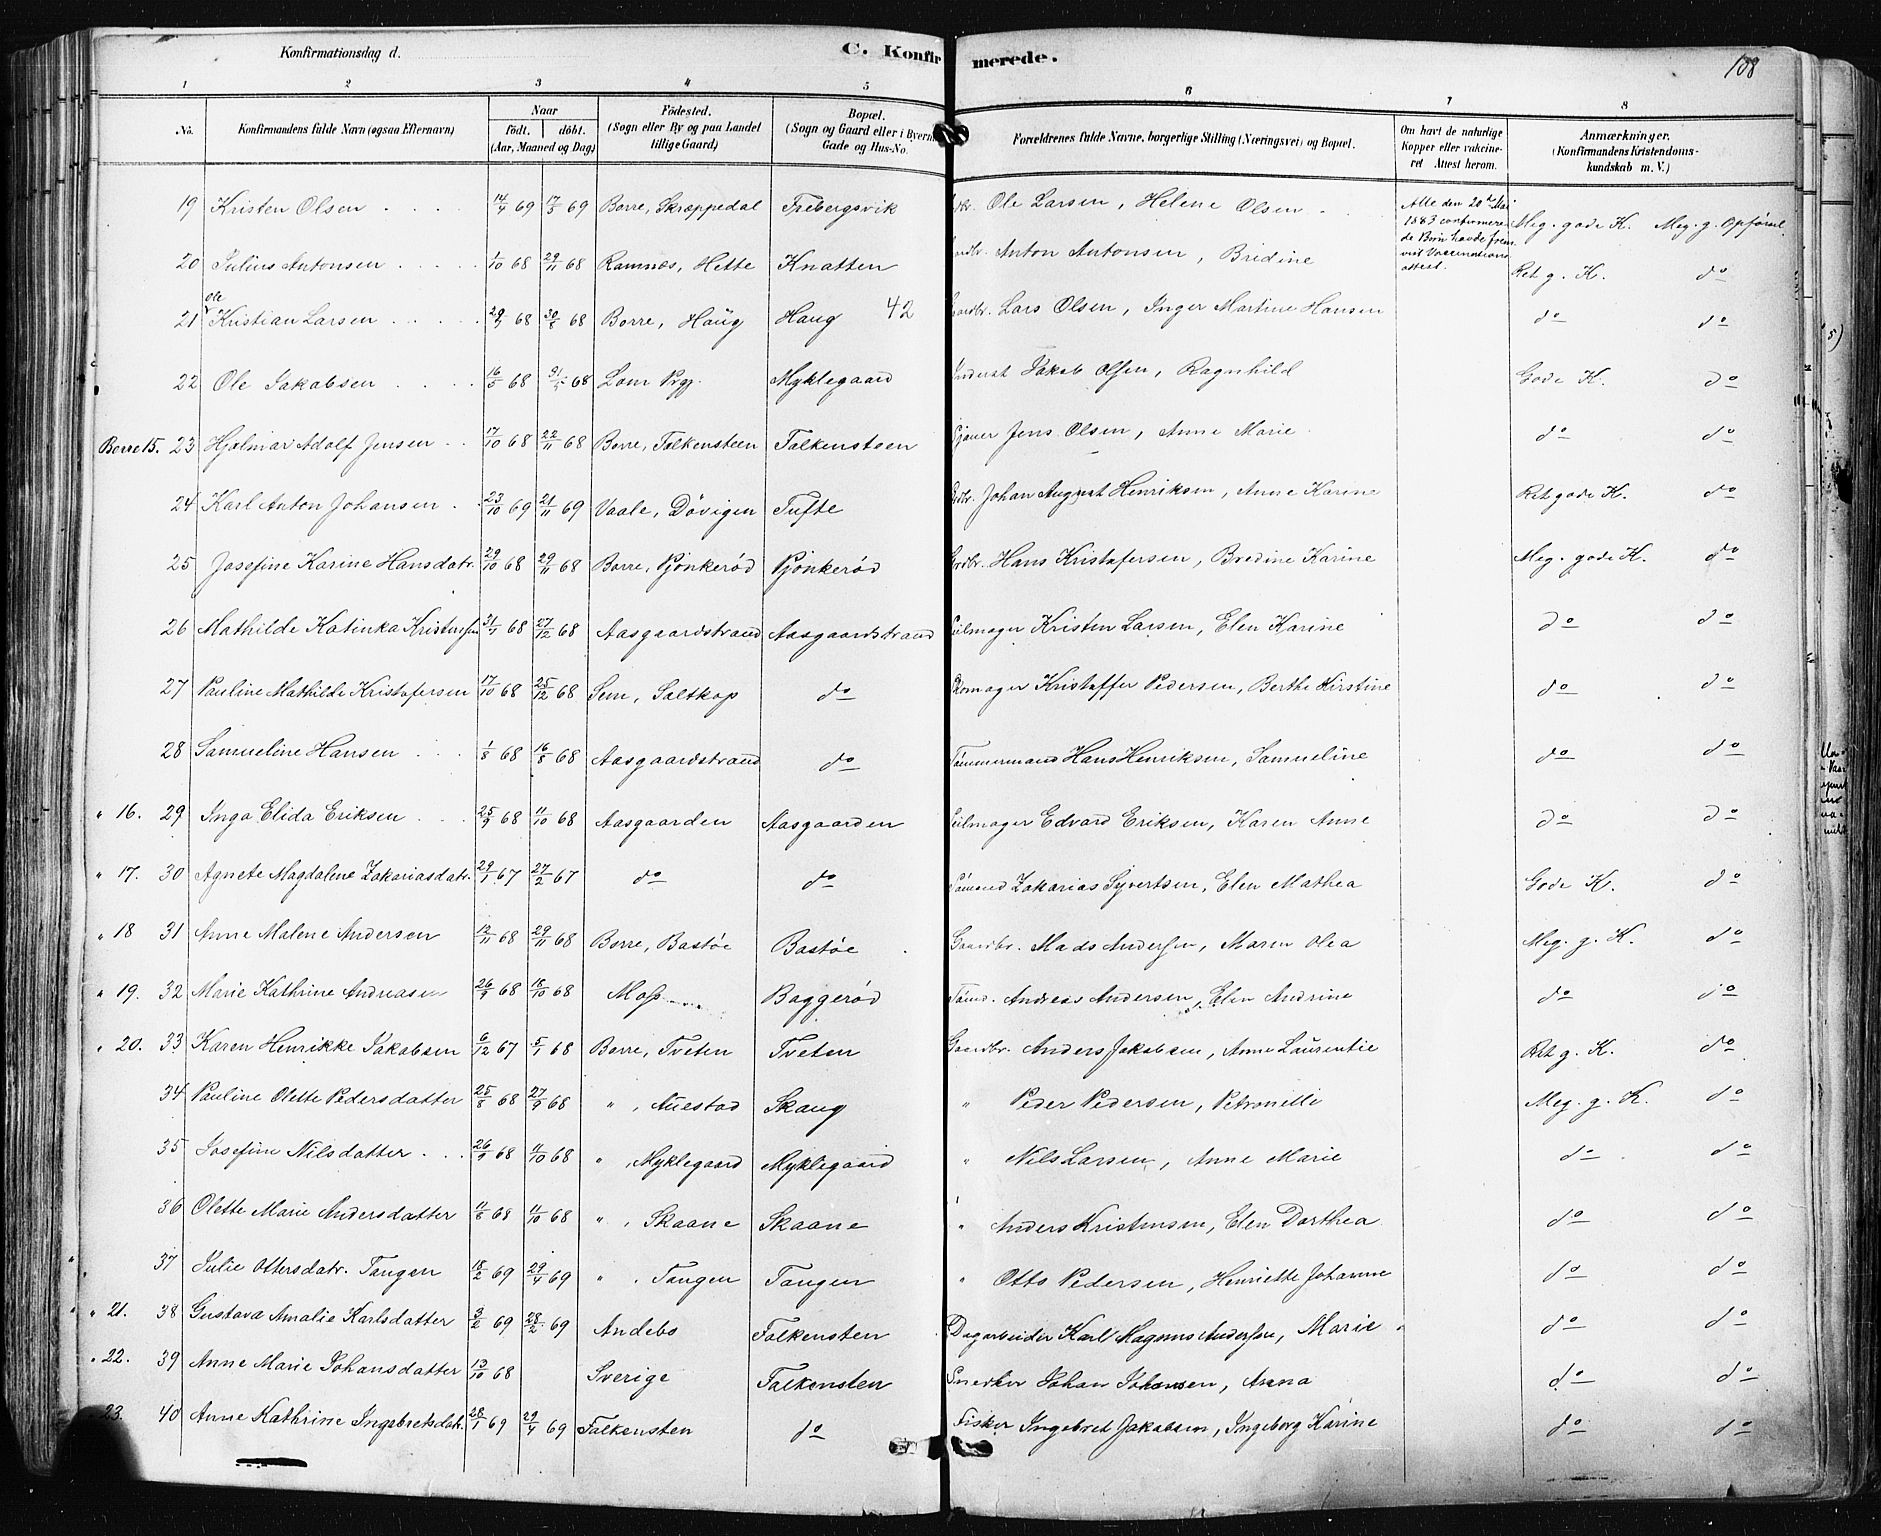 Konfirmationsdag d.
C. Konfirmerede.
108
1 2 3 4 5 6 7 8
No. Konfirmandens fulde Navn (ogsaa Efternavn) Naar födt. döbt. (Aar, Maaned og Dag) Födested. (Sogn eller By og paa Landet tillige Gaard) Bopæl. (Sogn og Gaard eller i Byerne Gade og Hus-No. Forældrenes fulde Navne, borgerlige Stilling (Næringsvei) og Bopæl. Om havt de naturlige Kopper eller vakcineret Attest herom. Anmærkninger. (Konfirmandens Kristendomskundskab m. V.)
19 Kristen Olsen 14/4 69 17/5 69 Borre, Skræppedal Trebergsvik Ole Larsen, Helene Olsen Alle den 20de Mai 1883 confirmerede Børn havde fremvist Vaccinationsattest. Meg. gode K. Meg. g. Opførsel
20 Julius Antonsen 1/10 68 29/11 68 Ramnes, Hette Knatten Anton Antonsen, Bridine Ret g. K. do
21 Ole Kristian Larsen 68 68 Borre, Haug Haug 42 Gaardbr. Lars Olsen, Inger Martine Hansen do do
22 Ole Jakobsen 16/5 68 68 Lom Prgj. Myklegaard Inderst Jakob Olsen, Ragnhild Gode K. do
Borre 15. 23 Hjalmar Adolf Jensen 17/10 68 22/11 68 Borre, Falkensteen Falkensteen Jens Olsen, Anne Marie do do
24 Karl Anton Johansen 23/10 69 21/11 69 Vaale, Dövigen Tufte Johan August Henriksen, Anne Karine Ret gode K. do
25 Josefine Karine Hansdatr. 29/10 68 29/11 68 Borre, Pjönkeröd Pjönkeröd Hans Kristofersen, Bredine Karine Meg. gode K. do
26 Mathilde Katinka Kristensen 68 27/12 68 Aasgaardstrand Aasgaardstrand Seilmager Kristen Larsen, Elen Karine do do
27 Pauline Mathilde Kristofersen 17/10 68 25/12 68 Sem, Saltkop do Skomager Kristoffer Pedersen, Berthe Kirstine do do
28 Samueline Hansen 1/8 68 16/8 68 Aasgaardstrand do Tømmermand Hans Henriksen, Samueline do do
" 16. 29 Inga Elida Eriksen 25/9 68 11/10 68 Aasgaarden Aasgaarden Seilmager Edvard Eriksen, Karen Anne do do
" 17. 30 Agnete Magdalene Zakariasdatr. 29/1 67 27/2 67 do do Sømand Zakarias Syvertsen, Elen Mathea Gode K. do
" 18 31 Anne Malene Andersen 12/11 68 29/11 68 Borre, Bastöe Bastöe Gaardbr. Mads Andersen, Maren Olea Meg. g. K. do
" 19. 32 Marie Kathrine Andreasen 26/9 68 18/10 68 Moss Baggeröd Tømd. Andreas Andersen, Elen Andrine do do
" 20. 33 Karen Henrikke Jakobsen 6/12 67 5/1 68 Borre, Tveten Tveten Gaardbr. Anders Jakobsen, Anne Laurentie Ret g. K. do
34 Pauline Olette Pedersdatter 25/8 68 27/9 68 " , Auestad Skaug " Peder Pedersen, Petronelle Meg. g. K. do
35 Josefine Nilsdatter 26/9 68 11/10 68 " , Myklegaard Myklegaard " Nils Larsen, Anne Marie do do
36 Olette Marie Andersdatter 11/8 68 11/10 68 " , Skaane Skaane " Anders Kristensen, Elen Dorthea do do
37 Julie Ottersdatr. Tangen 18/2 69 29/4 69 " , Tangen Tangen " Otto Pedersen, Henriette Johanne do do
" 21. 38 Gustava Amalie Karlsdatter 3/2 69 28/2 69 Andebo Falkensten Dagarbeider Karl Magnus Andersen, Marie do do
" 22. 39 Anne Marie Johansdatter 13/10 68 Sverige Falkensten Snedker Johan Johansen, Anna do do
23. 40 Anne Kathrine Ingebretsdatr. 28/1 69 29/4 69 Falkensten do Fisker Ingebret Jakobsen, Ingeborg Karine do do